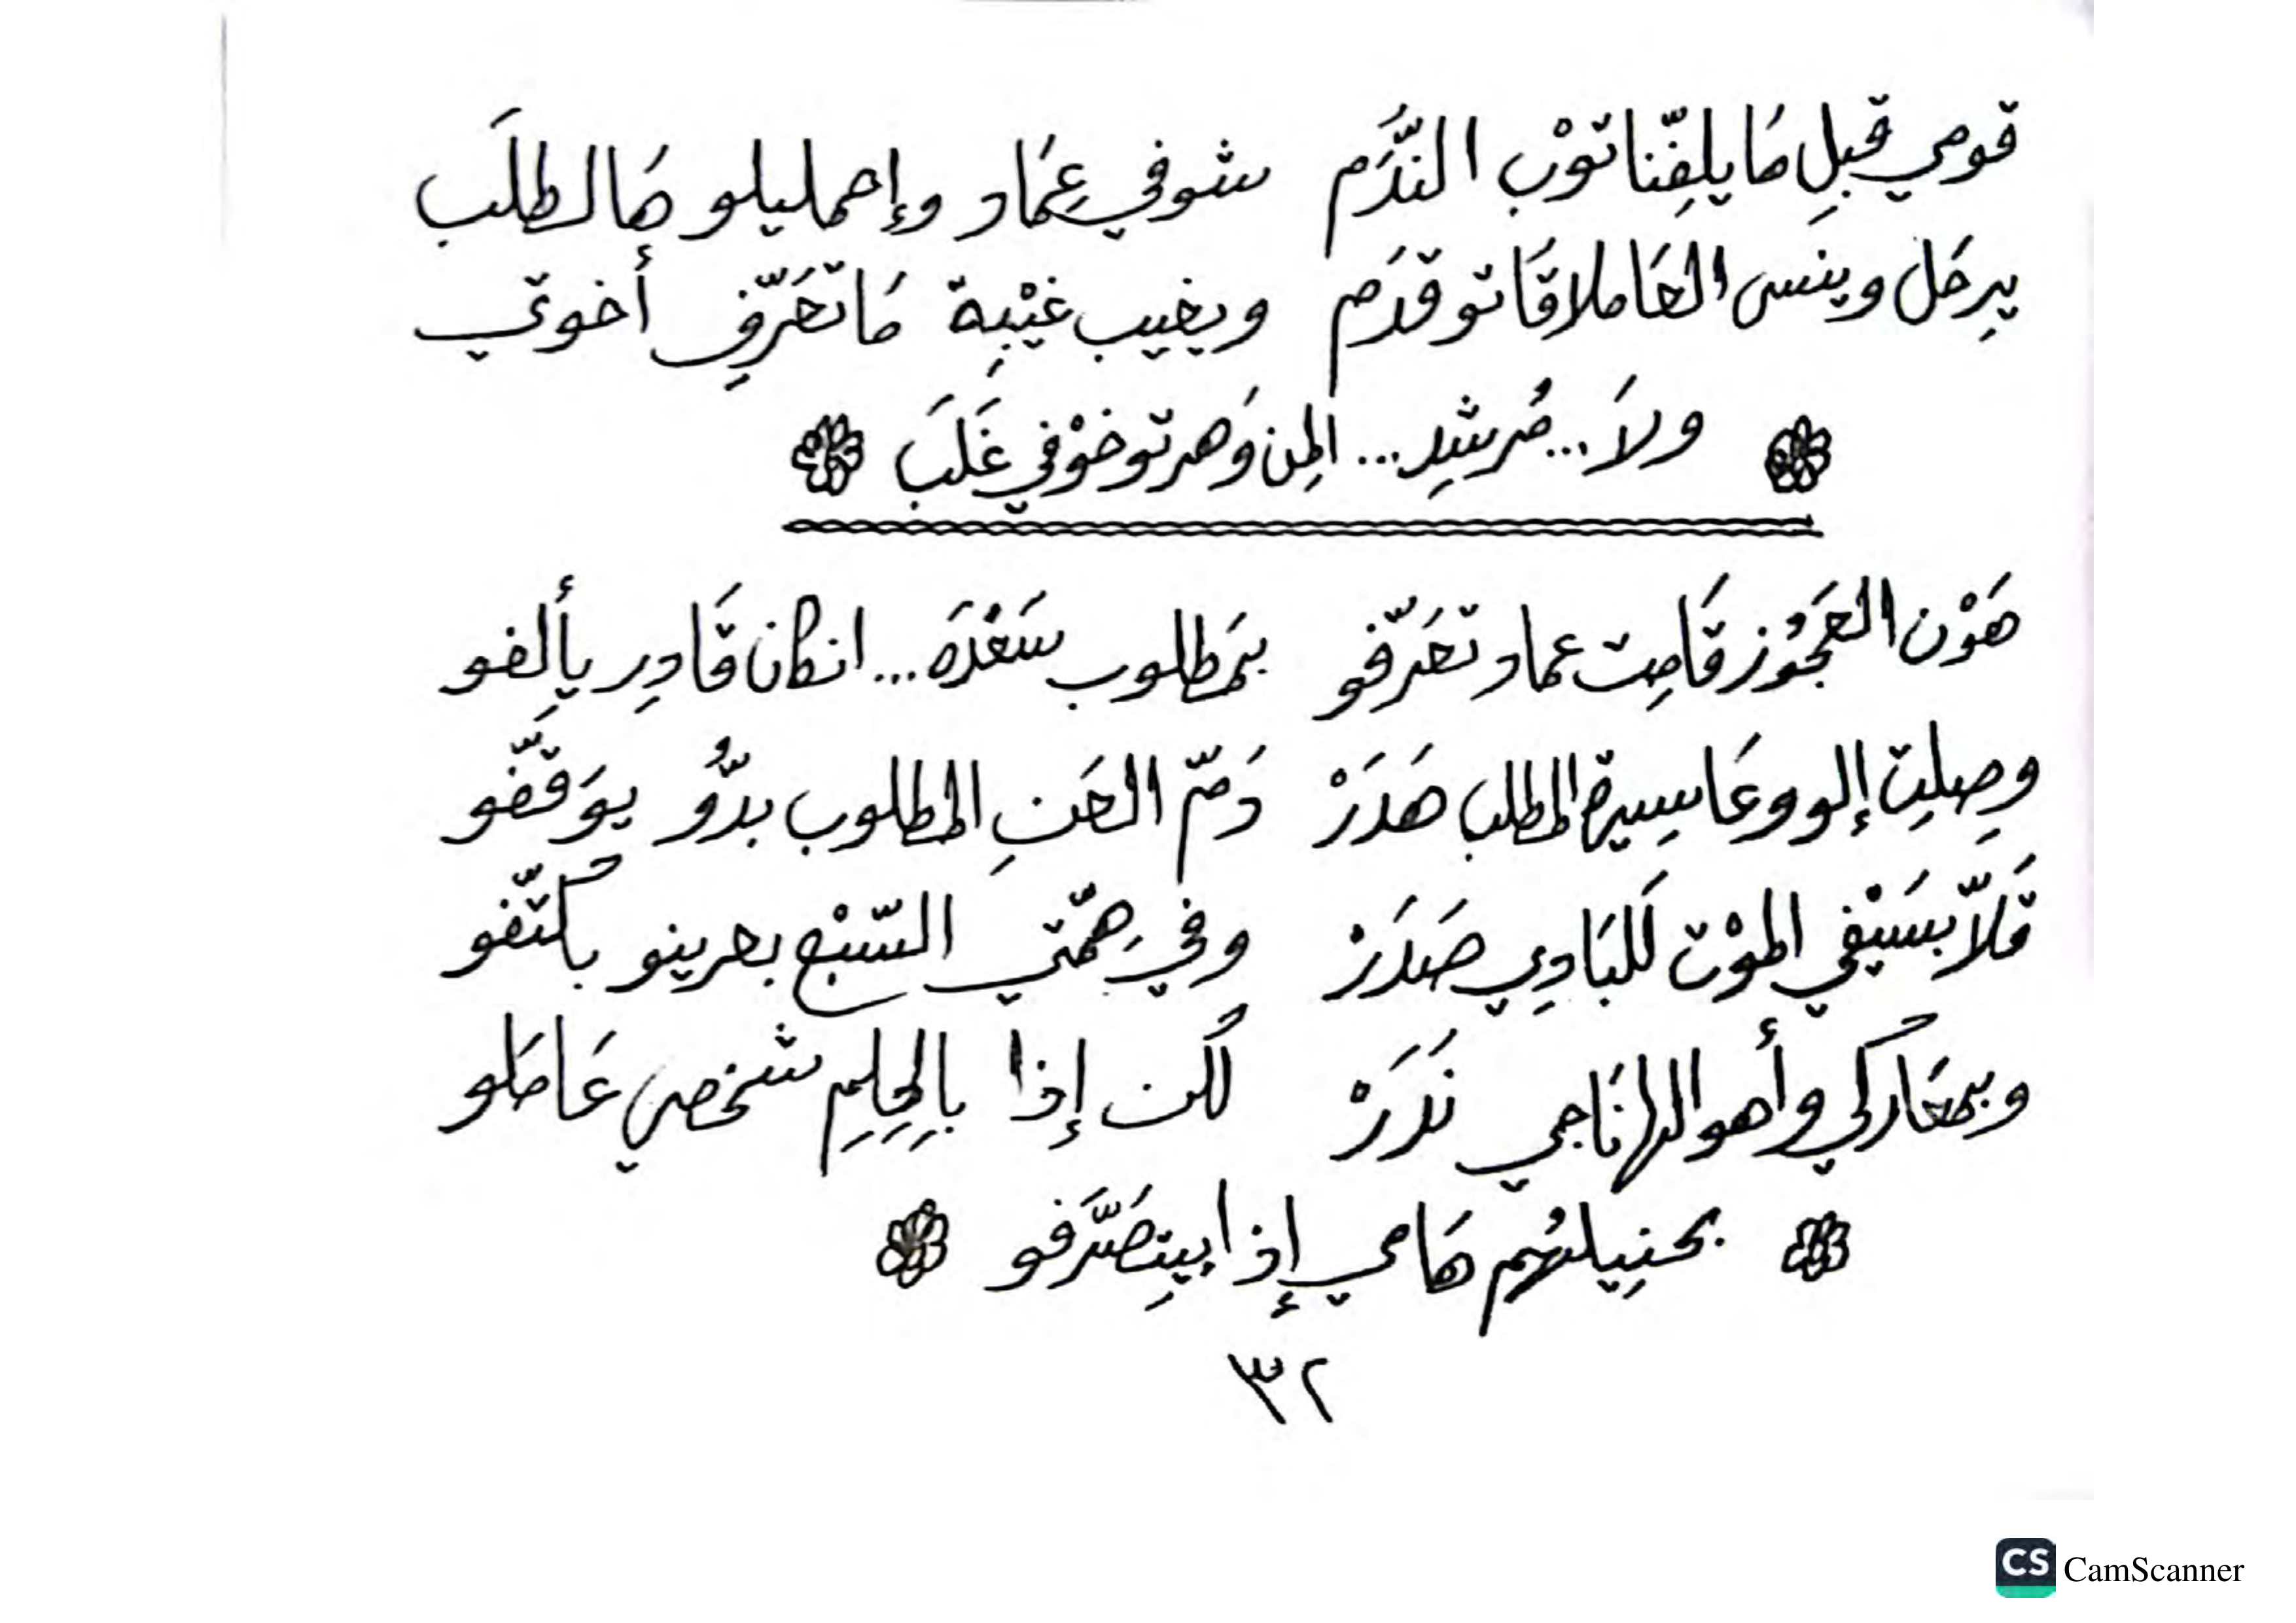 قومي قبلِ مَا يلفِّنا توْب النَّدَم شوفي عِمَاد وإحمليلو هَالطلَب
يرِحَل وينسى العَاملاقَاتو قدَم ويغيب غيْبِة مَا تعَرِّف أخوتي
ولاَ... مُرشدِ... المِن وَهرتو خوْفي غَلَبَ
هَوْن العَجُوز قَامِت عماد تعَرِّفو بمَطلوب سَعْدَه... انكان قَادِر يأَلِفو
وصِلِت إلو وعَا سِيرة المطلب هَدَرْ دَمّ العَنِ المطلوب بدُّو يوَقّفو
قَلاّ بسَيْفي الموْت لَلبَادِي صَدَرْ وفي هِمّتي السّبْع بعرينو بكتّفو
وبمعَاركي وأهوالها نَاجي نَدَرْ لكن إذا بالحِلِمِ شخصي عَامَلو
بحنِيلهُم هَامي إذا بيتِصَرَّفو
٣٢
CS CamScanner